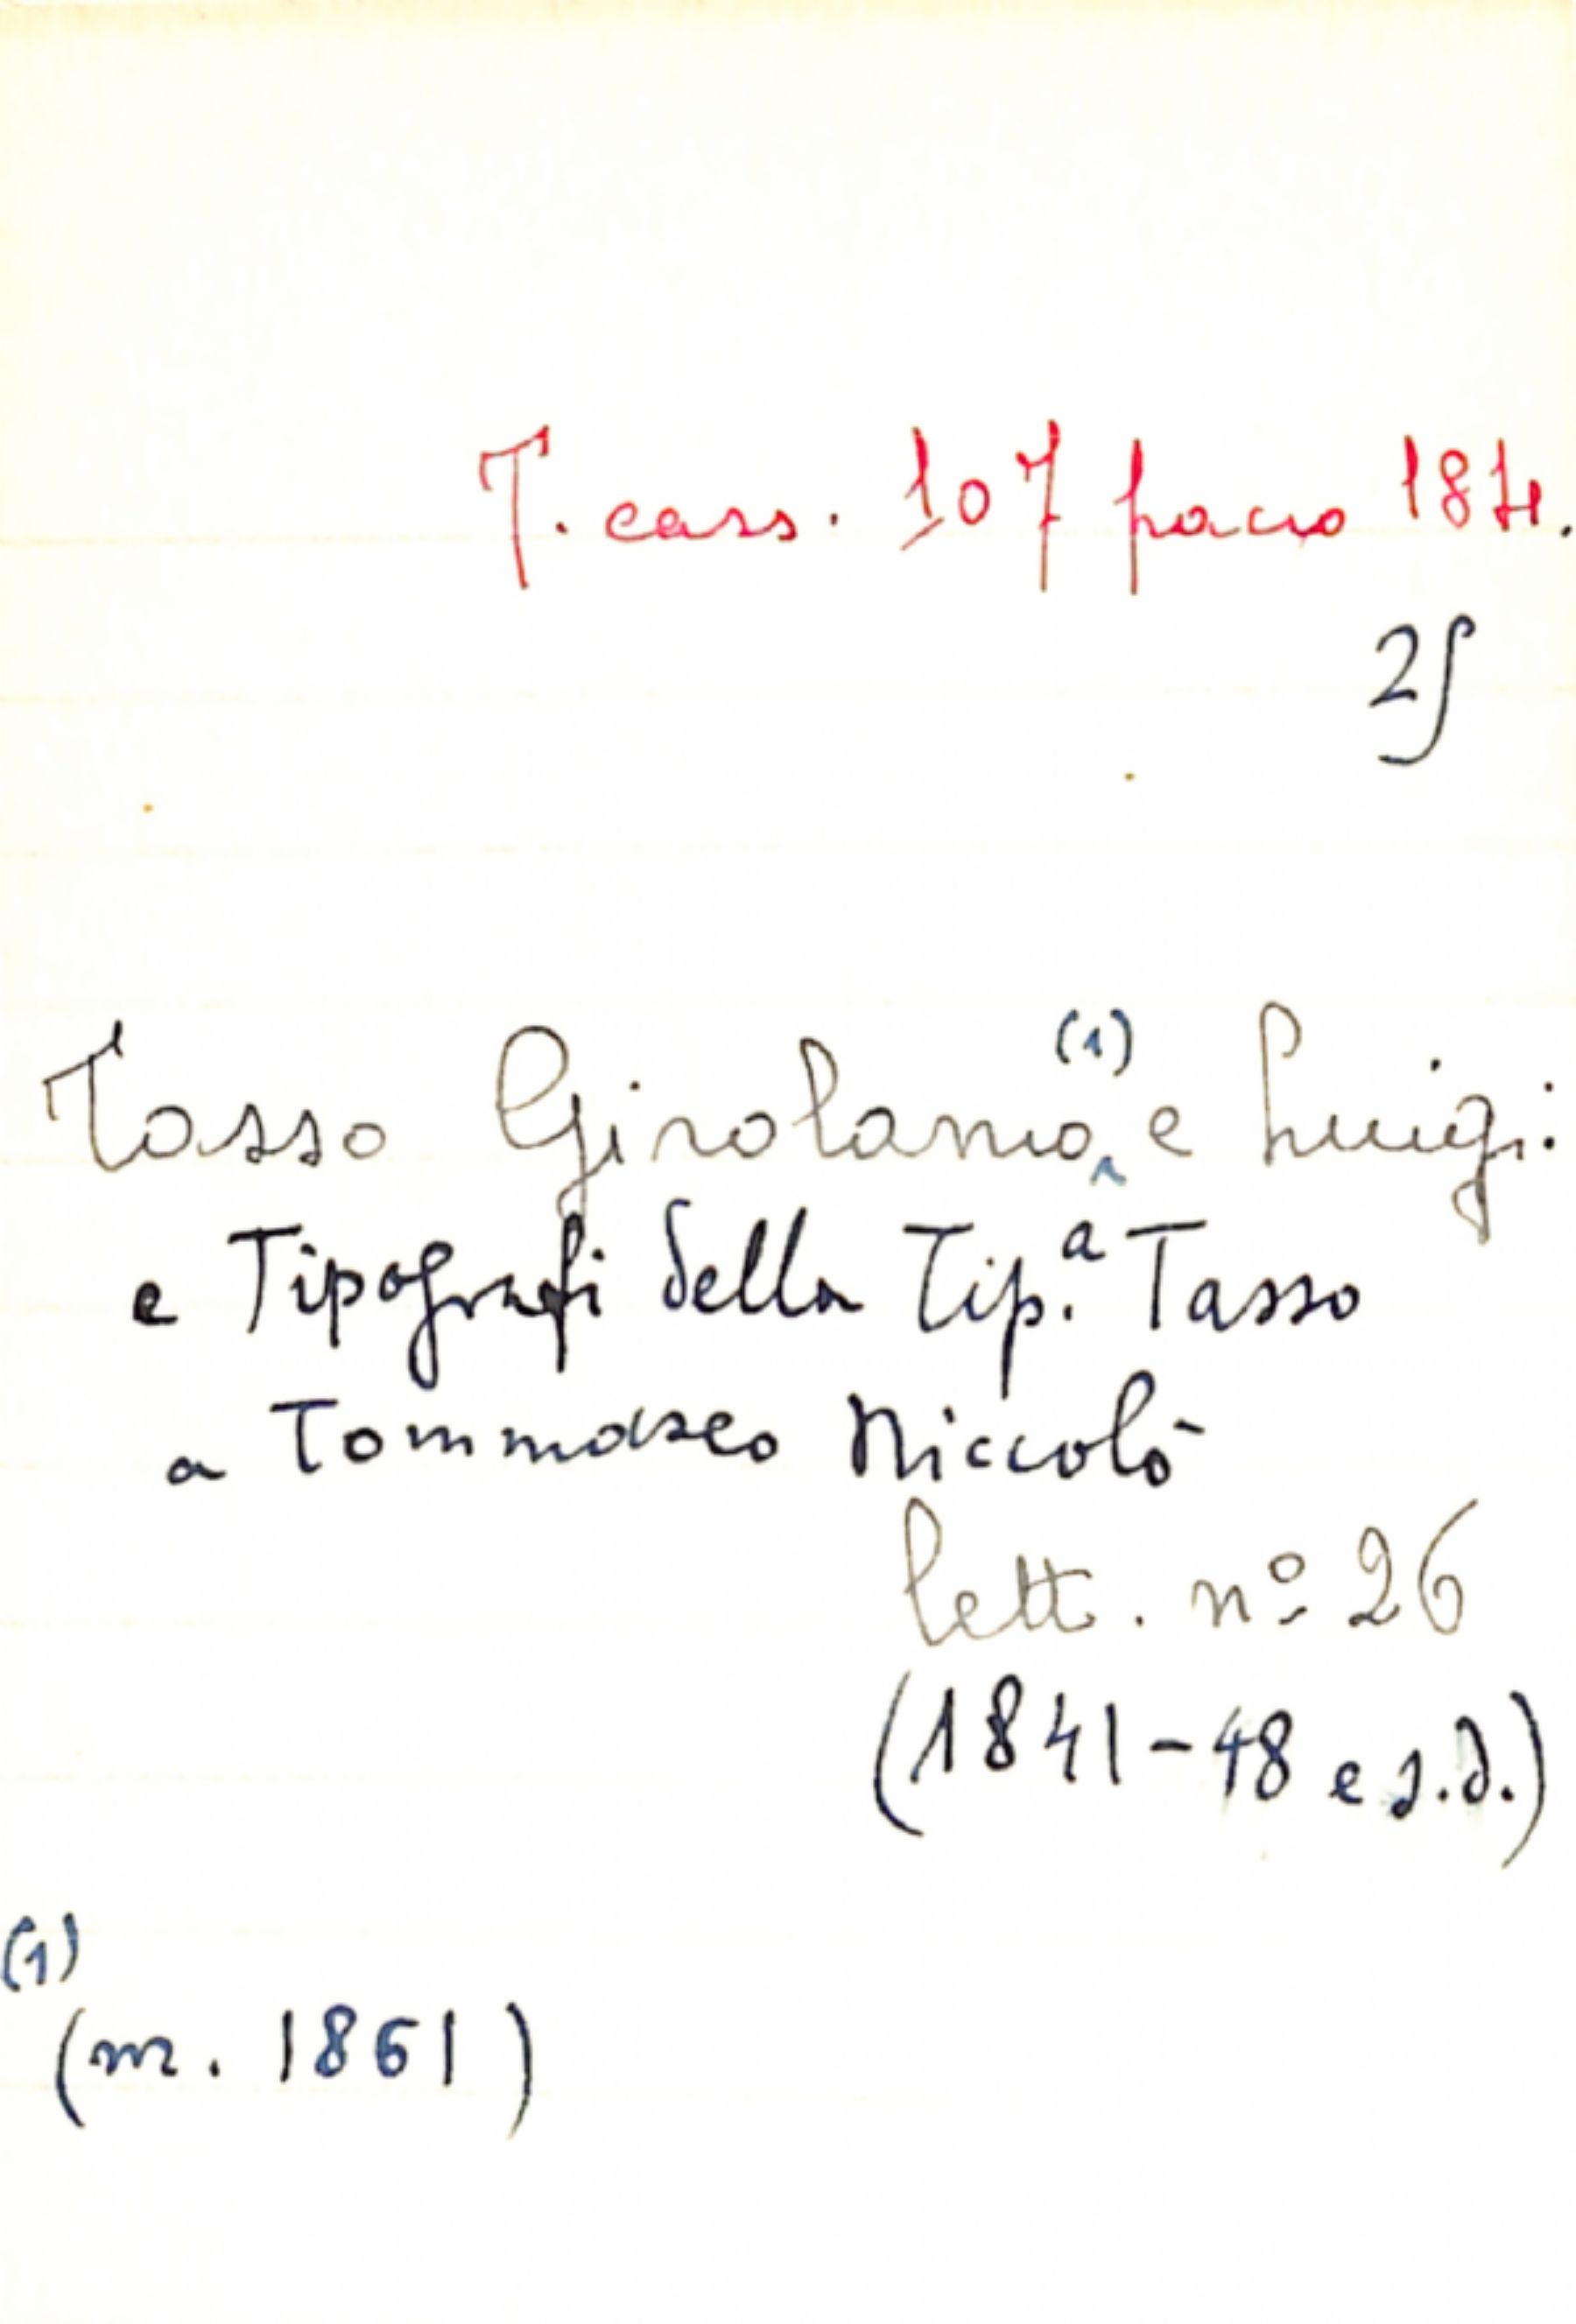 T. cass. 107 pacco 184.
25
Tasso Girolamo (1) e Luigi:
e Tipografi della Tip.a Tasso
a Tommaseo Niccolò
lett. nº 26
(1841-48 e s.d.)
(1)
(m. 1861)